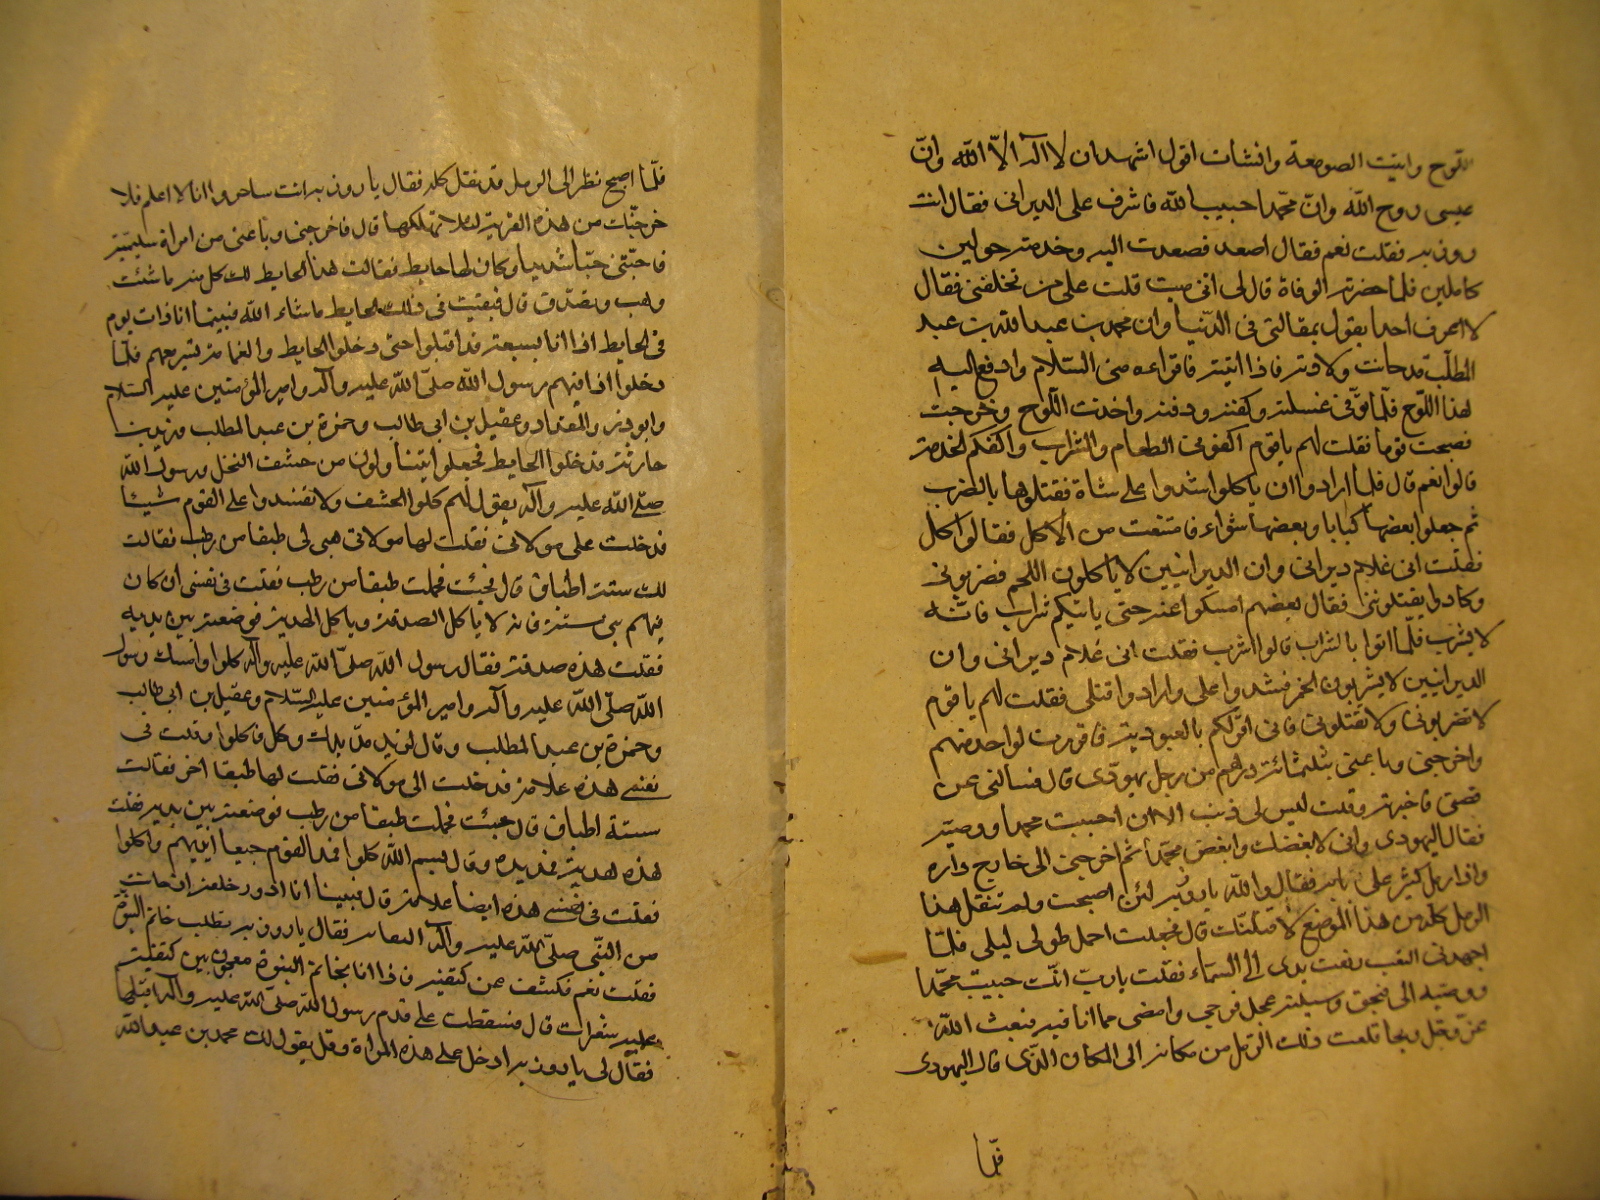 اللوح واتيت الصومعة وانشات اقول اشهد ان لا اله الا الله وان
عيسى روح الله وان محمدا حبيب الله فاشرف على الديرانى فقال انت
روزبه فقلت نعم فقال اصعد فصعدت اليه وخدمته حولين
كاملين فلما حضرته الوفاة قال لى انى ميت قلت على من تخلفنى فقال
لا اعرف احدا يقول بمقالتى فى الدنيا وان محمد بن عبد الله بن عبد
المطلب قد حانت ولادته فاذا اتيته فاقراءه منى السلام وادفع اليه
هذا اللوح فلما توفى غسلته وكفنته ودفنته واخذت اللوح وخرجت
فصحبت قوما فقلت لهم يا قوم اكفونى الطعام والشراب واكفكم الخدمة
قالوا نعم قال فلما ارادوا ان ياكلوا شدوا على شاة فقتلوها بالضرب
ثم جعلوا بعضها كبابا وبعضها شواء فامتنعت من الاكل فقالوا كل
فقلت انى غلام ديرانى وان الديرانيين لا ياكلون اللحم فضربونى
وكادوا يقتلوننى فقال بعضهم امسكوا عنه حتى ياتيكم شراب فانه
لا يشرب فلما اتوا بالشراب قالوا اشرب فقلت انى غلام ديرانى وان
الديرانيين لا يشربون الخمر فشدوا على وارادوا قتلى فقلت لهم يا قوم
لا تضربونى ولا تقتلونى فانى اقر لكم بالعبودية فاقررت لواحد منهم
واخرجنى وباعنى بثلثمائة درهم من رجل يهودى قال فسالنى عن
قصتى فاخبرته وقلت ليس لى ذنب الا ان احببت محمدا ووصيه
فقال اليهودى وانى لابغضك وابغض محمدا ثم اخرجنى الى خارج داره
واذا رمل كثير على بابه فقال والله يا روزبه لئن اصبحت ولم تنقل هذا
الرمل كله من هذا الموضع لاقتلنك قال فجعلت احمل طول ليلى فلما
اجهدنى التعب رفعت يدى الى السماء فقلت يا رب انك حببت محمدا
ووصيه الى فبحق وسيلته عجل فرجى وامضى مما انا فيه فبعث الله
عز وجل ريحا قلعت ذلك الرمل من مكانه الى المكان الذى قال اليهودى
فلما
فلما اصبح نظر الى الرمل قد نقل كله فقال يا روزبه انت ساحر وانا لا اعلم فلا
خرجنك من هذه القرية لئلا تهلكها قال فاخرجنى وباعنى من امراة سليمية
فاحبتنى حبا شديدا وكان لها حايط فقالت هذا الحايط لك كل منه ما شئت
وهب وتصدق قال فبقيت فى ذلك الحايط ما شاء الله فبينما انا ذات يوم
فى الحايط اذا انا بسبعة قد اقبلوا حتى دخلوا الحايط والغمامة تسير معهم فلما
دخلوا اذا فيهم رسول الله صلى الله عليه وآله وامير المؤمنين عليه السلام
وابو ذر والمقداد وعقيل بن ابى طالب وحمزة بن عبد المطلب وزيد بن
حارثة قد دخلوا الحايط فجعلوا يتناولون من حشف النخل ورسول الله
صلى الله عليه وآله يقول لهم كلوا الحشف ولا تفسدوا على القوم شيئا
فدخلت على مولاتى فقلت لها مولاتى هبى لى طبقا من رطب فقالت
لك ستة اطباق قال فجئت فحملت طبقا من رطب فقلت فى نفسى ان كان
فيهم نبى فانه لا ياكل الصدقة وياكل الهدية فوضعته بين يديه
فقلت هذه صدقة فقال رسول الله صلى الله عليه وآله كلوا وامسك رسول
الله صلى الله عليه وآله وامير المؤمنين عليه السلام وعقيل بن ابى طالب
وحمزة بن عبد المطلب وقال لزيد مد يدك وكل فاكلوا وقلت فى
نفسى هذه علامة فدخلت الى مولاتى فقلت لها طبقا اخر فقالت
ستة اطباق قال فجئت فحملت طبقا من رطب فوضعته بين يديه فقلت
هذه هدية فمد يده وقال بسم الله كلوا فمد القوم جميعا ايديهم واكلوا
فقلت فى نفسى هذه ايضا علامة قال فبينا انا ادور خلفه اذ حانت
من النبى صلى الله عليه وآله التفاتة فقال يا روزبه تطلب خاتم النبوة
فقلت نعم فكشف عن كتفيه فاذا انا بخاتم النبوة معجون بين كتفيه
عليه شعرات قال فسقطت على قدم رسول الله صلى الله عليه وآله اقبلها
فقال لى يا روزبه ادخل على هذه المراة وقل يقول لك محمد بن عبد الله